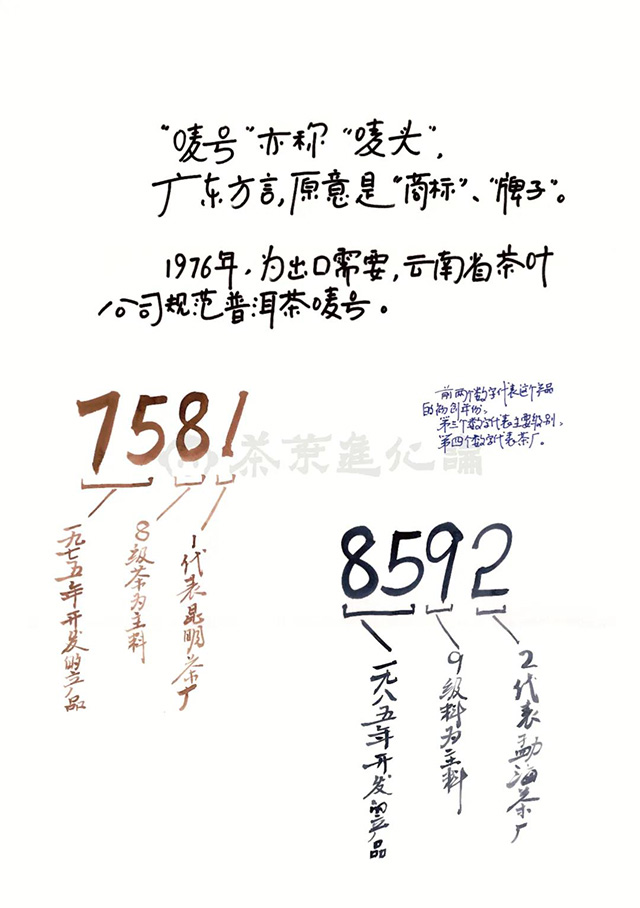 “唛号”亦称“唛头”,
广东方言,原意是“商标”、“牌子”。
1976年,为出口需要,云南省茶叶
公司规范普洱茶唛号。
7581
前两个数字代表这个产品
的初创年份,
第三个数字代表主要级别,
第四个数字代表茶厂。
茶葉進化論
一九七五年开发的产品
8级茶为主料
1代表昆明茶厂
8592
一九八五年开发的产品
9级料为主料
2代表勐海茶厂